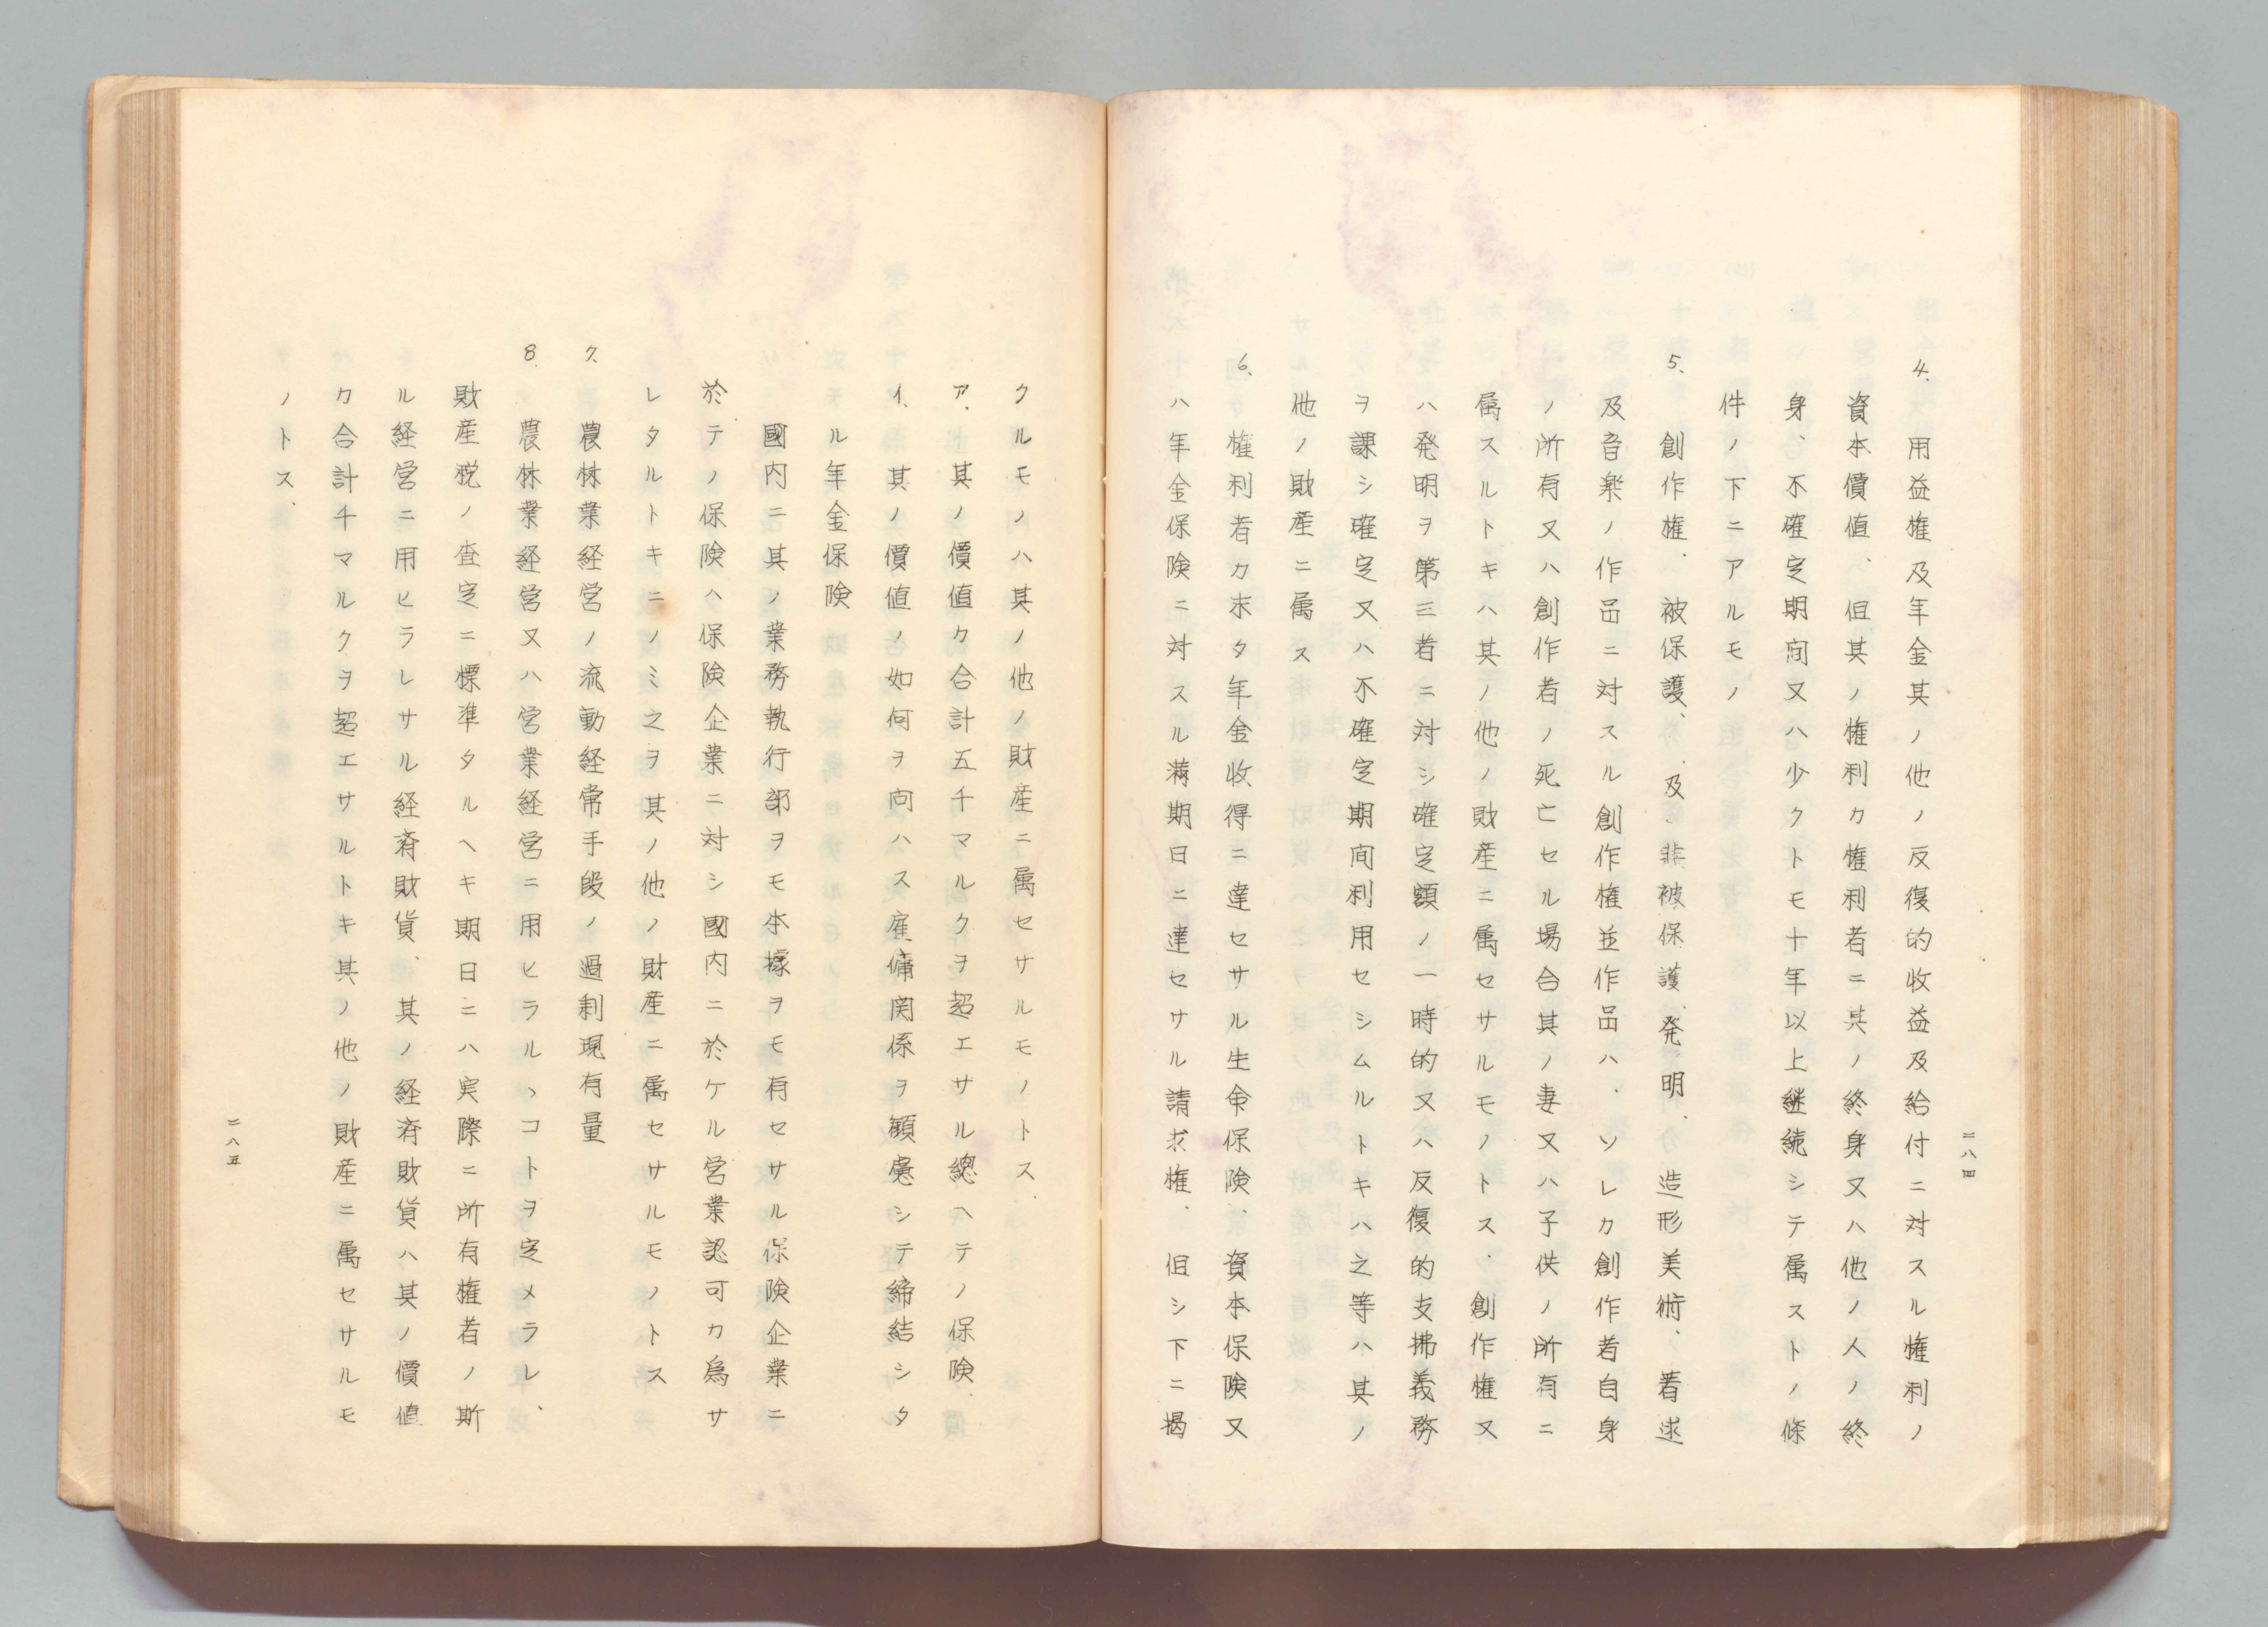 二八四
4. 用益権及年金其ノ他ノ反復的收益及給付ニ対スル権利ノ
資本價値、但其ノ権利カ権利者ニ其ノ終身又ハ他ノ人ノ終
身、不確定期间又ハ少クトモ十年以上継続シテ属ストノ條
件ノ下ニアルモノ
5. 創作権、被保護、及、非被保護、発明、造形美術、著述
及音楽ノ作品ニ対スル創作権並作品ハ、ソレカ創作者自身
ノ所有又ハ創作者ノ死亡セル場合其ノ妻又ハ子供ノ所有ニ
属スルトキハ其ノ他ノ財産ニ属セサルモノトス、創作権又
ハ発明ヲ第三者ニ対シ確定額ノ一時的又ハ反復的支拂義務
ヲ課シ確定又ハ不確定期间利用セシムルトキハ之等ハ其ノ
他ノ財産ニ属ス
6、権利者カ未タ年金收得ニ達セサル生命保険、資本保険又
ハ年金保険ニ対スル満期日ニ達セサル請求権、但シ下ニ掲
クルモノハ其ノ他ノ財産ニ属セサルモノトス、
ア、其ノ價値カ合計五千マルクヲ超エサル總ヘテノ保険、
イ、其ノ價値ノ如何ヲ问ハス雇傭関係ヲ顧慮シテ締結シタ
ル年金保険
國内ニ其ノ業務執行部ヲモ本據ヲモ有セサル保険企業ニ
於テノ保険ハ保険企業ニ対シ國内ニ於ケル営業認可カ爲サ
レタルトキニノミ之ヲ其ノ他ノ財産ニ属セサルモノトス
7. 農林業経営ノ流動経常手段ノ過剰現有量
8. 農林業経営又ハ営業経営ニ用ヒラルヽコトヲ定メラレ、
財産税ノ査定ニ標準タルヘキ期日ニハ実際ニ所有権者ノ斯
ル経営ニ用ヒラレサル経済財貨、其ノ経済財貨ハ其ノ價値
カ合計千マルクヲ超エサルトキ其ノ他ノ財産ニ属セサルモ
ノトス、
二八五